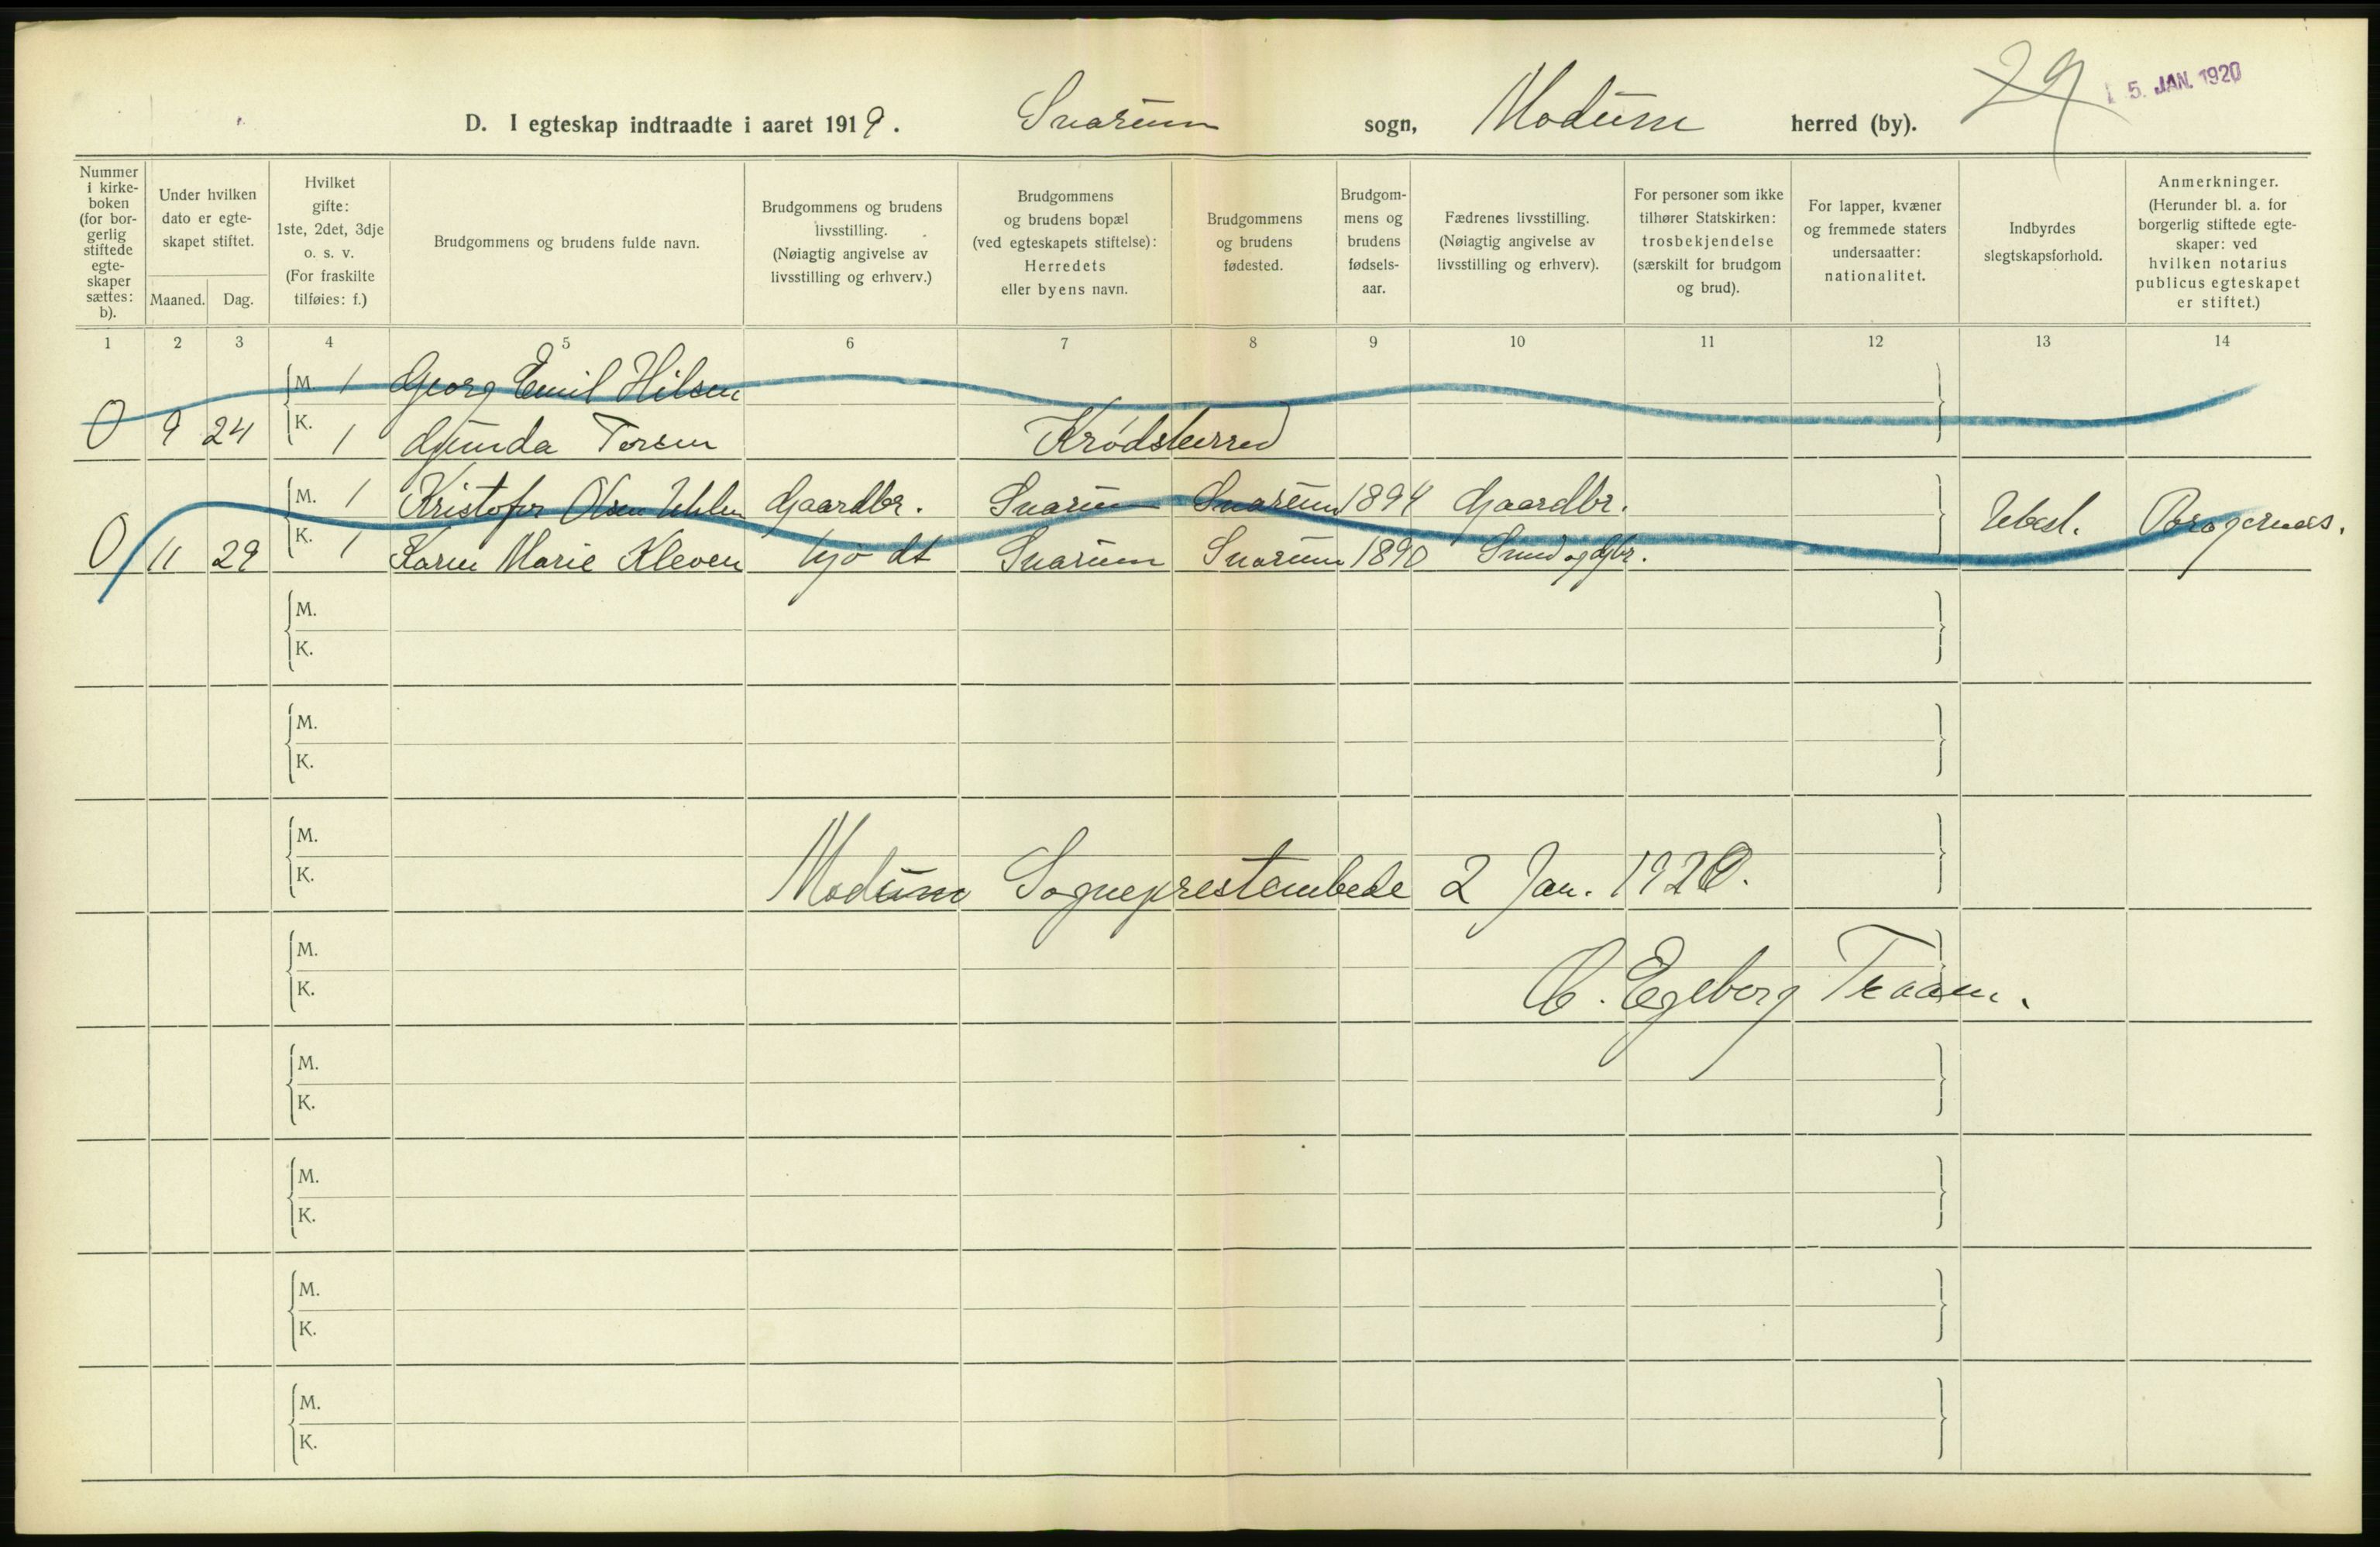 D. I egteskap indtraadte i aaret 1919. Snarum sogn, Modum herred (by). 29
5. JAN. 1920
Nummer i kirke-boken (for bor-gerlig stiftede egte-skaper sættes: b).
Under hvilken dato er egte-skapet stiftet.
Maaned. Dag.
Hvilket gifte: 1ste, 2det, 3dje o. s. v. (For fraskilte tilføies: f.)
Brudgommens og brudens fulde navn.
Brudgommens og brudens livsstilling. (Nøiagtig angivelse av livsstilling og erhverv.)
Brudgommens og brudens bopæl (ved egteskapets stiftelse): Herredets eller byens navn.
Brudgommens og brudens fødested.
Brudgom-mens og brudens fødsels-aar.
Fædrenes livsstilling. (Nøiagtig angivelse av livsstilling og erhverv).
For personer som ikke tilhører Statskirken: trosbekjendelse (særskilt for brudgom og brud).
For lapper, kvæner og fremmede staters undersaatter: nationalitet.
Indbyrdes slegtskapsforhold.
Anmerkninger. (Herunder bl. a. for borgerlig stiftede egte-skaper: ved hvilken notarius publicus egteskapet er stiftet.)
1 2 3 4 5 6 7 8 9 10 11 12 13 14
M. 1 Georg Emil Hilsen
0 9 24 K. 1 Gunda Torsen Krødsherred
M. 1 Kristofer Olsen Gaardbr. Snarum Snarum 1894 Gaardbr. Ubesl. Bragernæs.
0 11 29 K. 1 Karen Marie Kleven Snarum Snarum 1890 Smed og gbr.
M.
K.
M.
K.
M.
K. Modum Sogneprestembede 2 Jan. 1920.
M.
K. C. Egeberg Traaen.
M.
K.
M.
K.
M.
K.
M.
K.